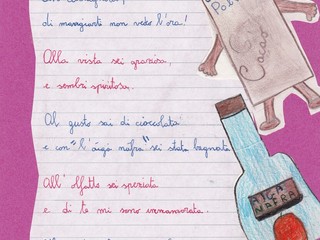 di mangiarti non vedo l'ora!
Alla vista sei graziosa,
e sembri spiritosa.
Al gusto sai di cioccolata
e con "l'àiga nàfra" sei stata bagnata
All'olfatto sei speziata
e di te mi sono innamorata.
Cacao
AIGA
NAFRA